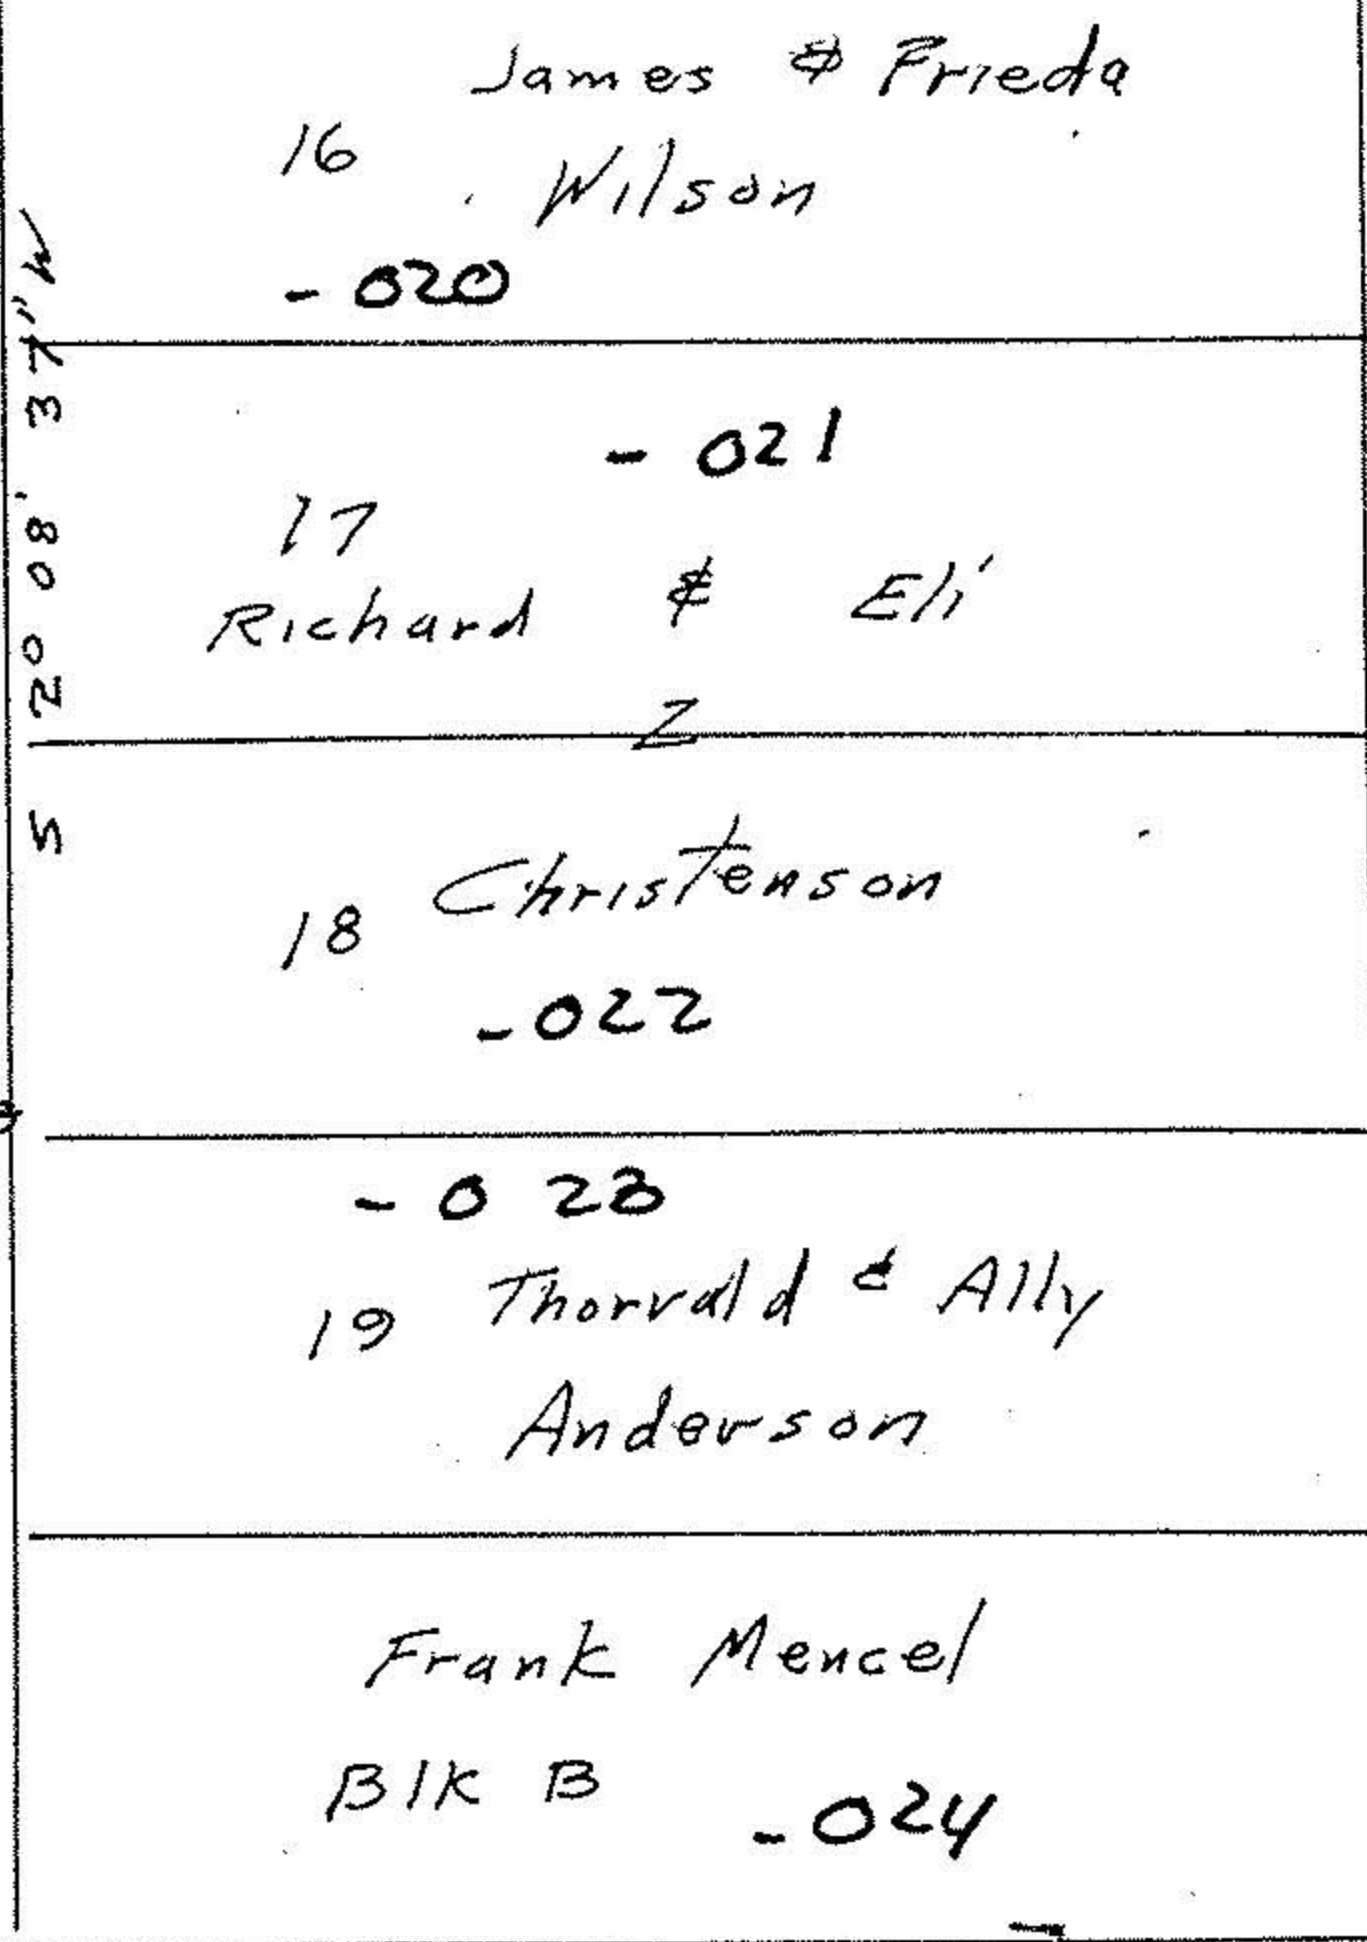 James & Frieda
16
Wilson
- 020
S 2° 08' 37" W
- 021
17
Richard & Eli
Z
Christenson
18
- 022
- 023
Thorvald & Ally
19
Anderson
Frank Mencel
Blk B
- 024